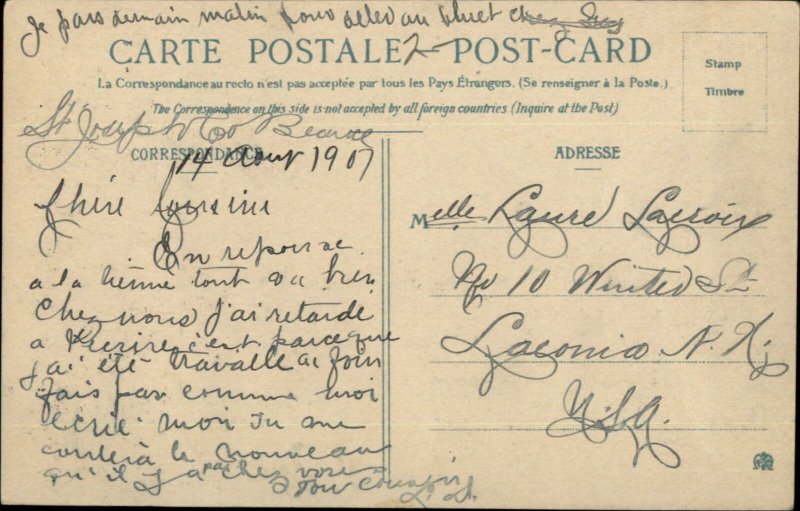 Je pars demain matin pour aller au bluet chez
CARTE POSTALE POST-CARD
Stamp
Timbre
La Correspondance au recto n'est pas acceptée par tous les Pays Étrangers. (Se renseigner à la Poste.)
The Correspondence on this side is not accepted by all foreign countries (Inquire at the Post)
St Joseph Co Beauce
CORRESPONDANCE
14 Aout 1907
ADRESSE
Chère Cousine
En reponse
a la tienne tout va bien
Chez nous j'ai retardé
a t'ecrire c'est parce que
j'ai été travaille au foin
fais pas comme moi
ecrie moi tu me
contera le nouveau
qu'il y a par chez vous
Ton Cousin
Melle Laure Lacroix
No 10 Winter St
Laconia N. H.
U.S.A.